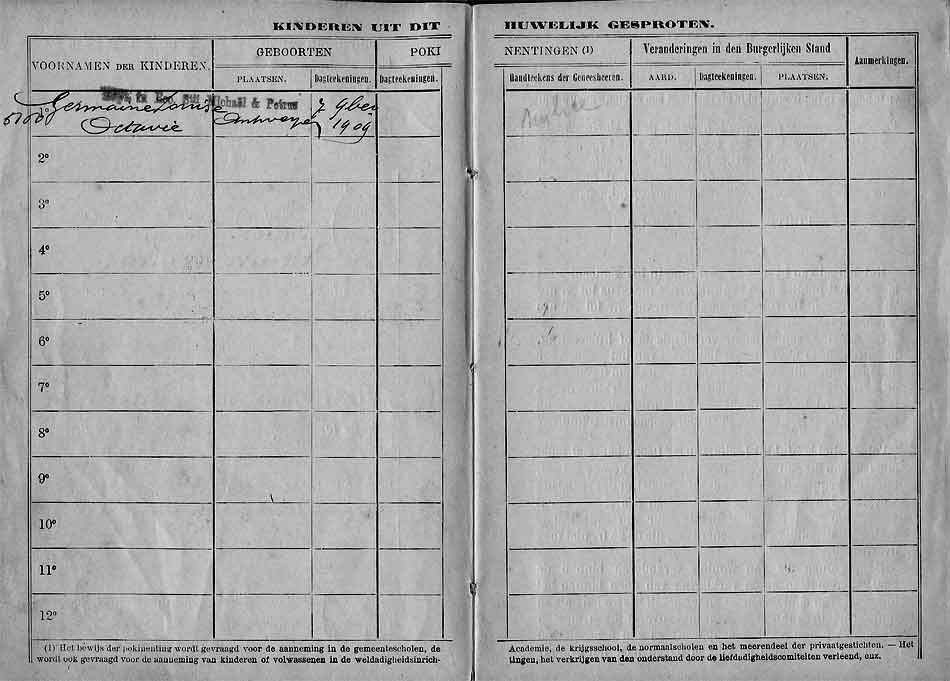 KINDEREN UIT DIT HUWELIJK GESPROTEN.
VOORNAMEN DER KINDEREN.
GEBOORTEN
PLAATSEN.
Dagteekeningen.
POKINENTINGEN (1)
Dagteekeningen.
Handteekens der Geneesheeren.
Veranderingen in den Burgerlijken Stand
AARD.
Dagteekeningen.
PLAATSEN.
Aanmerkingen.
Michaël & Petrus
1° Germaine Louise
Octavie
Antwerpen
7 9ber
1909
2°
3°
4°
5°
6°
7°
8°
9°
10°
11°
12°
(1) Het bewijs der pokinenting wordt gevraagd voor de aanneming in de gemeentescholen, de
wordt ook gevraagd voor de aanneming van kinderen of volwassenen in de weldadigheidsinrich-
Academie, de krijgsschool, de normaalscholen en het meerendeel der privaatgestichten. — Het
tingen, het verkrijgen van den onderstand door de liefdadigheidscomiteiten verleend, enz.